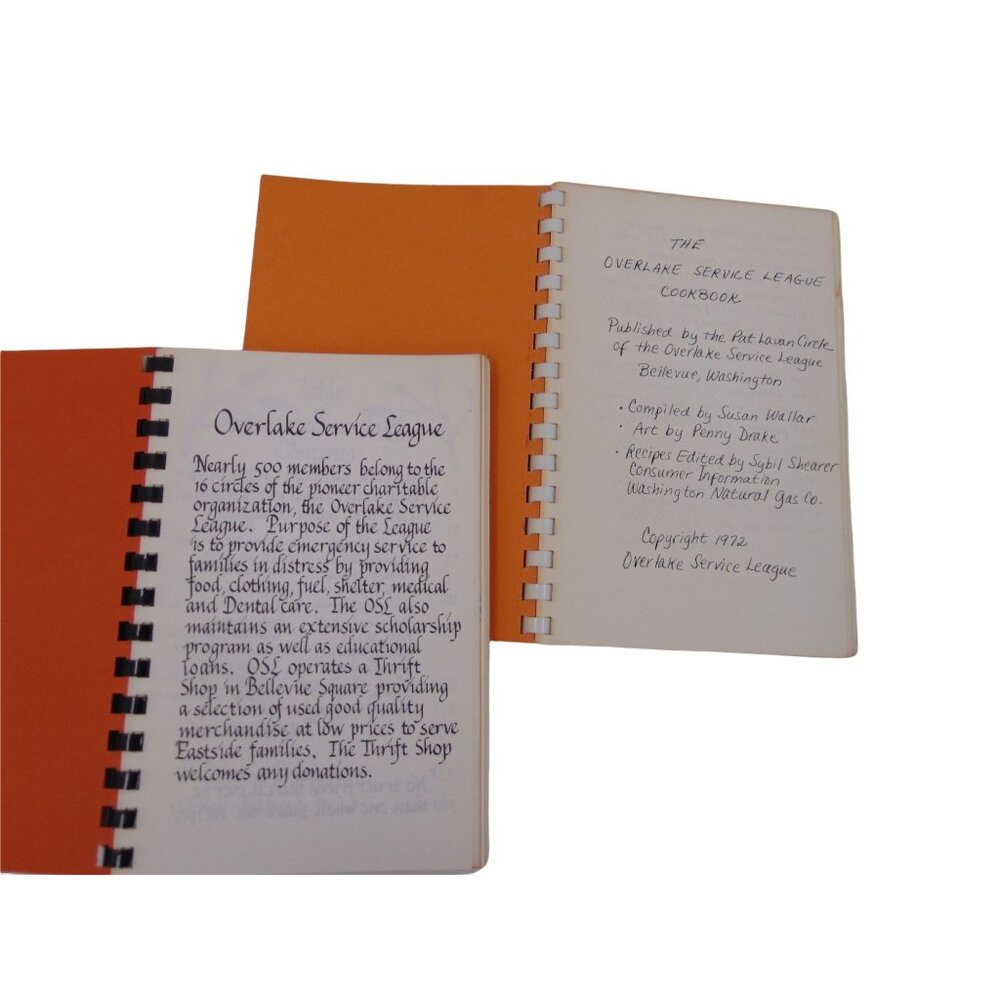 Overlake Service League
Nearly 500 members belong to the
16 circles of the pioneer charitable
organization, the Overlake Service
League. Purpose of the League
is to provide emergency service to
families in distress by providing
food, clothing, fuel, shelter, medical
and Dental care. The OSL also
maintains an extensive scholarship
program as well as educational
loans. OSL operates a Thrift
Shop in Bellevue Square providing
a selection of used good quality
merchandise at low prices to serve
Eastside families. The Thrift Shop
welcomes any donations.
THE
OVERLAKE SERVICE LEAGUE
COOKBOOK
Published by the Pat Lavan Circle
of the Overlake Service League
Bellevue, Washington
• Compiled by Susan Wallar
• Art by Penny Drake
• Recipes Edited by Sybil Shearer
Consumer Information
Washington Natural Gas Co.
Copyright 1972
Overlake Service League